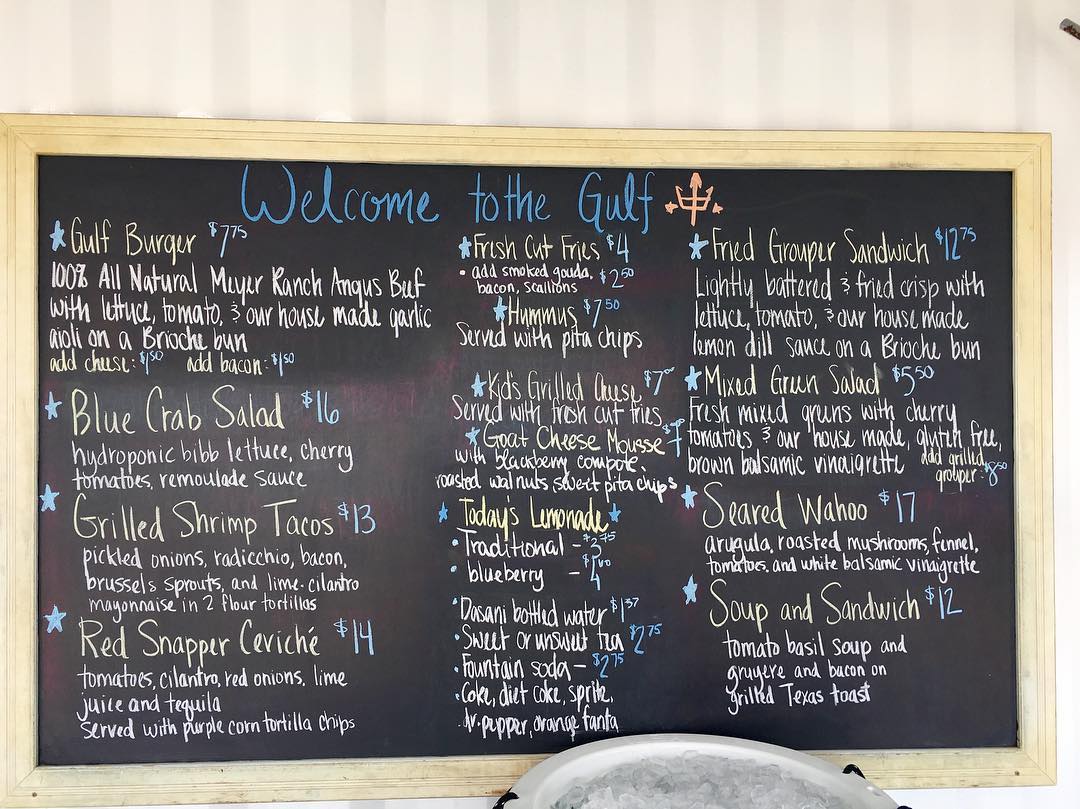 Welcome to the Gulf
Gulf Burger $7.75
100% All Natural Meyer Ranch Angus Beef
with lettuce, tomato, & our house made garlic
aioli on a Brioche bun
add cheese: $1.50 add bacon: $1.50
Blue Crab Salad $16
hydroponic bibb lettuce, cherry
tomatoes, remoulade sauce
Grilled Shrimp Tacos $13
pickled onions, radicchio, bacon,
brussels sprouts, and lime-cilantro
mayonnaise in 2 flour tortillas
Red Snapper Ceviché $14
tomatoes, cilantro, red onions, lime
juice and tequila
served with purple corn tortilla chips
Fresh Cut Fries $4
• add smoked gouda, $2.50
bacon, scallions
Hummus $7.50
Served with pita chips
Kid's Grilled Cheese $7
Served with fresh cut fries
Goat Cheese Mousse $7
with blackberry compote,
roasted walnuts, sweet pita chips
Today's Lemonade
• Traditional - $3.75
• blueberry - $4
• Dasani bottled water $1.37
• Sweet or unsweet tea $2.75
• Fountain soda - $2.75
• Coke, diet coke, sprite,
dr. pepper, orange fanta
Fried Grouper Sandwich $12.75
Lightly battered & fried crisp with
lettuce, tomato, & our house made
lemon dill sauce on a Brioche bun
Mixed Green Salad $5.50
Fresh mixed greens with cherry
tomatoes & our house made, gluten free,
brown balsamic vinaigrette add grilled
grouper: $8.50
Seared Wahoo $17
arugula, roasted mushrooms, fennel,
tomatoes, and white balsamic vinaigrette
Soup and Sandwich $12
tomato basil soup and
gruyere and bacon on
grilled Texas toast